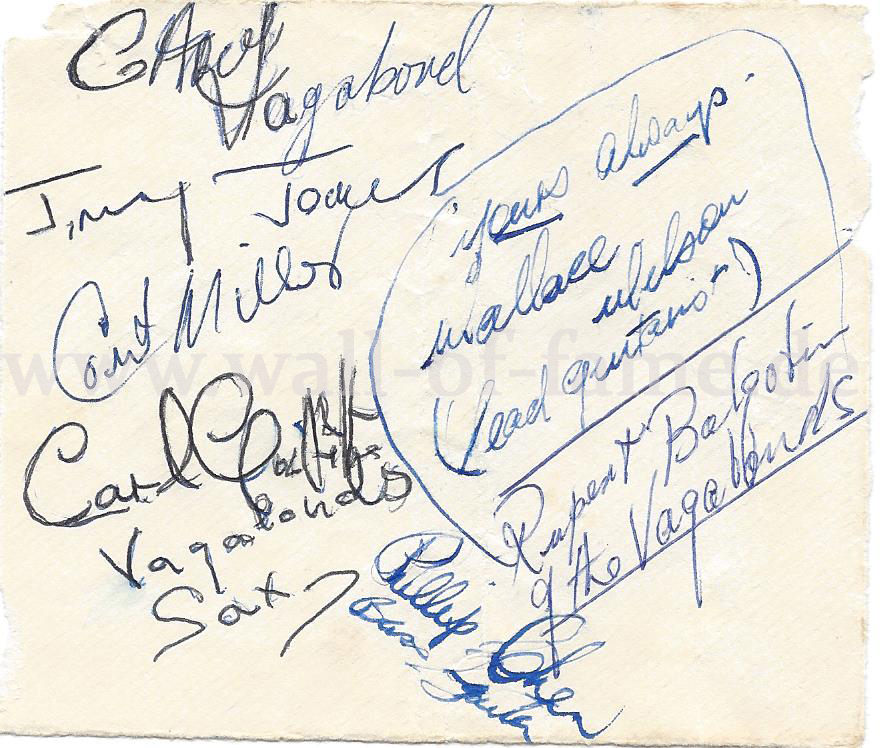 Vagabond
Jimmy James
Count Miller
Carl Griffiths
of the
Vagabonds
Sax
yours always.
Wallace
Wilson
(lead guitarist)
Rupert Balgobin
of the Vagabonds
Phillip Chen
Bass
www.wall-of-fame.de